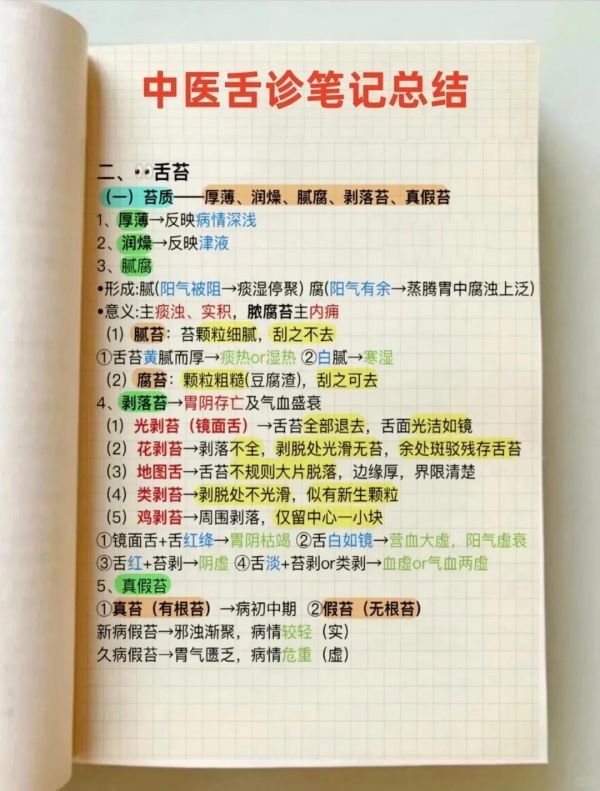 中医舌诊笔记总结
二、👀舌苔
（一）苔质——厚薄、润燥、腻腐、剥落苔、真假苔
1、厚薄→反映病情深浅
2、润燥→反映津液
3、腻腐
•形成:腻(阳气被阻→痰湿停聚) 腐(阳气有余→蒸腾胃中腐浊上泛)
•意义:主痰浊、实积，脓腐苔主内痈
（1）腻苔：苔颗粒细腻，刮之不去
①舌苔黄腻而厚→痰热or湿热 ②白腻→寒湿
（2）腐苔：颗粒粗糙(豆腐渣)，刮之可去
4、剥落苔→胃阴存亡及气血盛衰
（1）光剥苔（镜面舌）→舌苔全部退去，舌面光洁如镜
（2）花剥苔→剥落不全，剥脱处光滑无苔，余处斑驳残存舌苔
（3）地图舌→舌苔不规则大片脱落，边缘厚，界限清楚
（4）类剥苔→剥脱处不光滑，似有新生颗粒
（5）鸡剥苔→周围剥落，仅留中心一小块
①镜面舌+舌红绛→胃阴枯竭 ②舌白如镜→营血大虚，阳气虚衰
③舌红+苔剥→阴虚 ④舌淡+苔剥or类剥→血虚or气血两虚
5、真假苔
①真苔（有根苔）→病初中期 ②假苔（无根苔）
新病假苔→邪浊渐聚，病情较轻（实）
久病假苔→胃气匮乏，病情危重（虚）